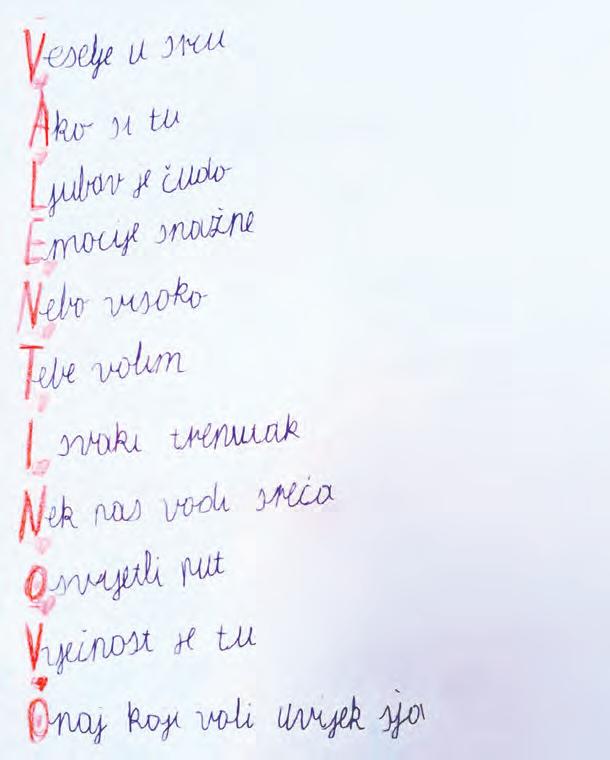 Veselje u srcu
Ako si tu
Ljubav je čudo
Emocije snažne
Nebo visoko
Tebe volim
I svaki trenutak
Nek nas vodi sreća
Osvijetli put
Vječnost je tu
Onaj koji voli uvijek sja